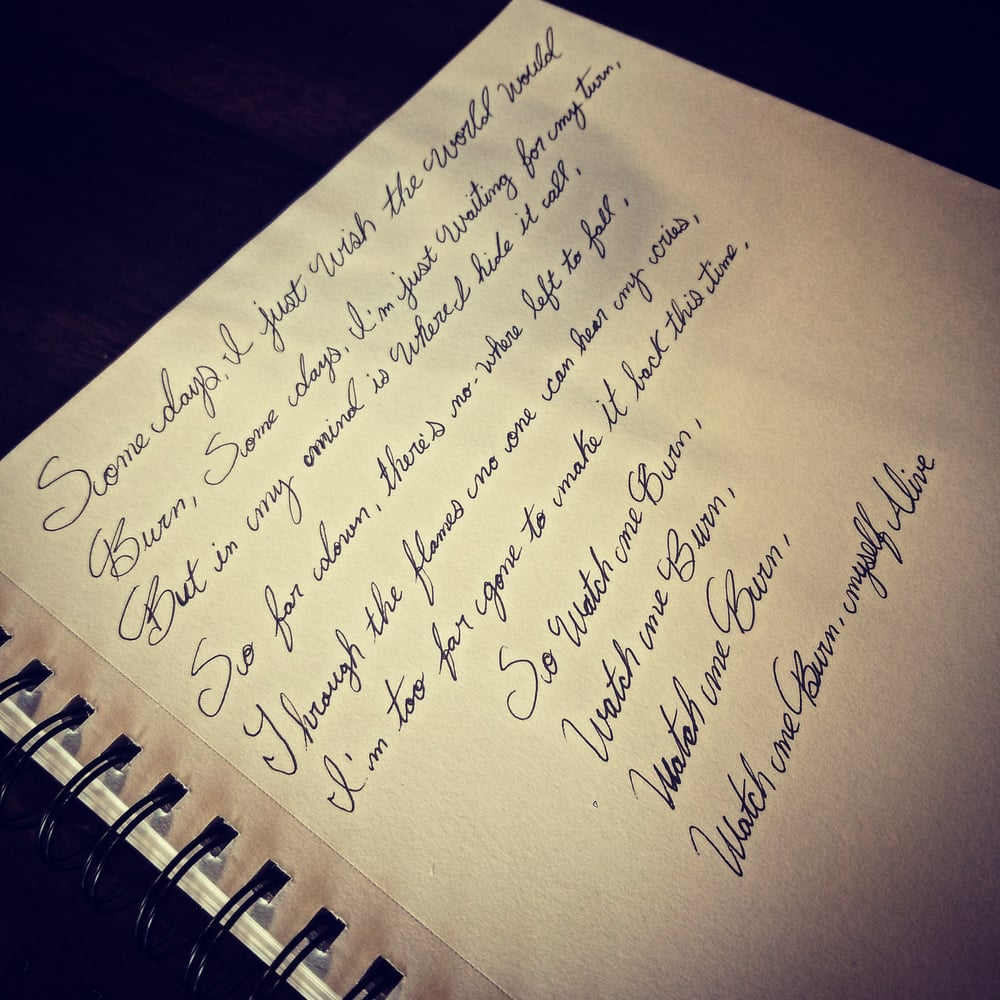 Some days, I just wish the world would
Burn, Some days, I'm just waiting for my turn,
But in my mind is where I hide it all,
So far down, there's no-where left to fall,
Through the flames no one can hear my cries,
I'm too far gone to make it back this time,
So Watch me Burn,
Watch me Burn,
Watch me Burn,
Watch me Burn, myself Alive